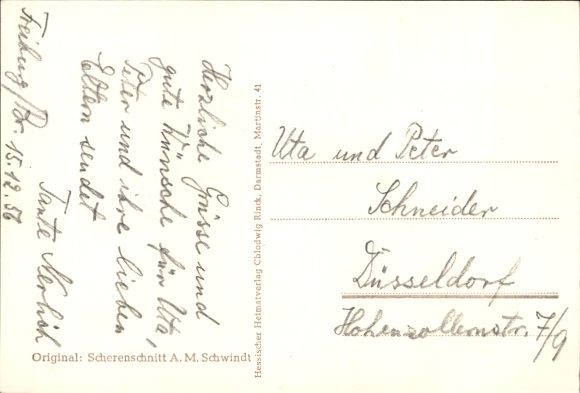 Freiburg/Br. 15.12.56
Herzliche Grüsse und
gute Wünsche für Uta,
Peter und ihre lieben
Eltern sendet
Tante
Original: Scherenschnitt A. M. Schwindt
Hessischer Heimatverlag Chlodwig Rinck, Darmstadt, Martinstr. 41
Uta und Peter
Schneider
Düsseldorf
Hohenzollernstr. 7/9